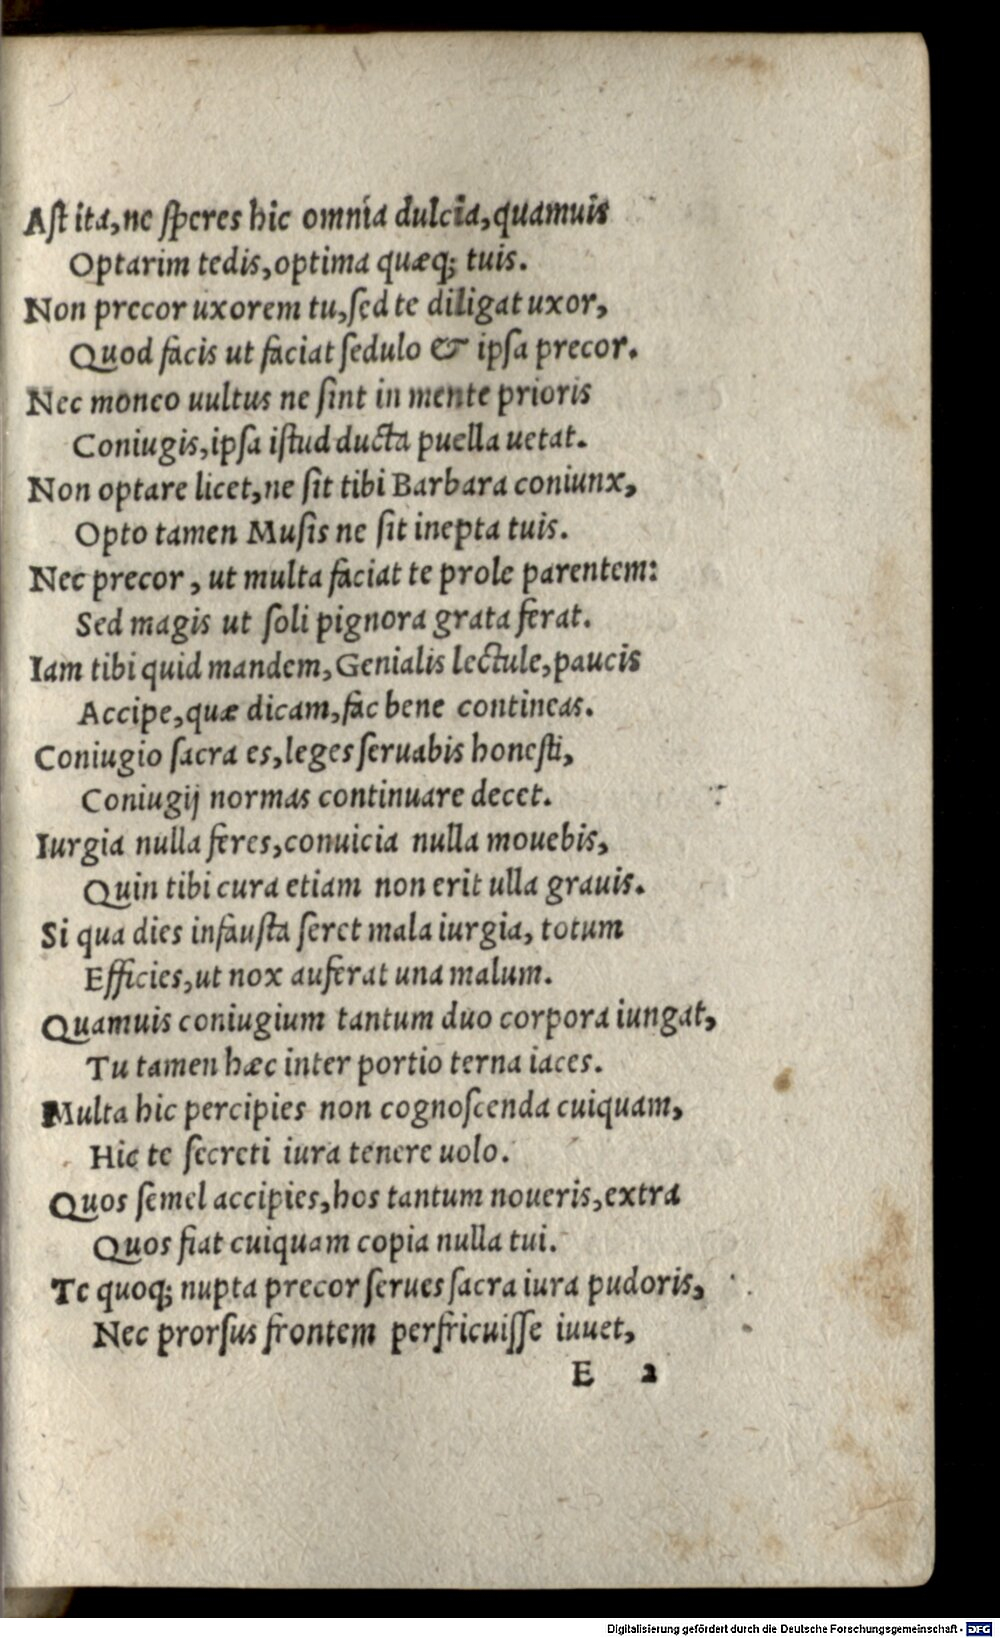 Aſt ita,ne ſperes hic omnia dulcia,quamuis
Optarim tedis,optima quæq; tuis.
Non precor uxorem tu,ſed te diligat uxor,
Quod facis ut faciat ſedulo & ipſa precor.
Nec moneo uultus ne ſint in mente prioris
Coniugis,ipſa iſtud ducta puella uetat.
Non optare licet,ne ſit tibi Barbara coniunx,
Opto tamen Muſis ne ſit inepta tuis.
Nec precor, ut multa faciat te prole parentem:
Sed magis ut ſoli pignora grata ferat.
Iam tibi quid mandem,Genialis lectule,paucis
Accipe,quæ dicam,fac bene contineas.
Coniugio ſacra es,leges ſeruabis honeſti,
Coniugij normas continuare decet.
Iurgia nulla feres,conuicia nulla mouebis,
Quin tibi cura etiam non erit ulla grauis.
Si qua dies infauſta ſeret mala iurgia, totum
Efficies,ut nox auferat una malum.
Quamuis coniugium tantum duo corpora iungat,
Tu tamen hæc inter portio terna iaces.
Multa hic percipies non cognoſcenda cuiquam,
Hic te ſecreti iura tenere uolo.
Quos ſemel accipies,hos tantum noueris,extra
Quos fiat cuiquam copia nulla tui.
Te quoq; nupta precor ſerues ſacra iura pudoris,
Nec prorſus frontem perfricuiſſe iuuet,
E 2
Digitalisierung gefördert durch die Deutsche Forschungsgemeinschaft - DFG